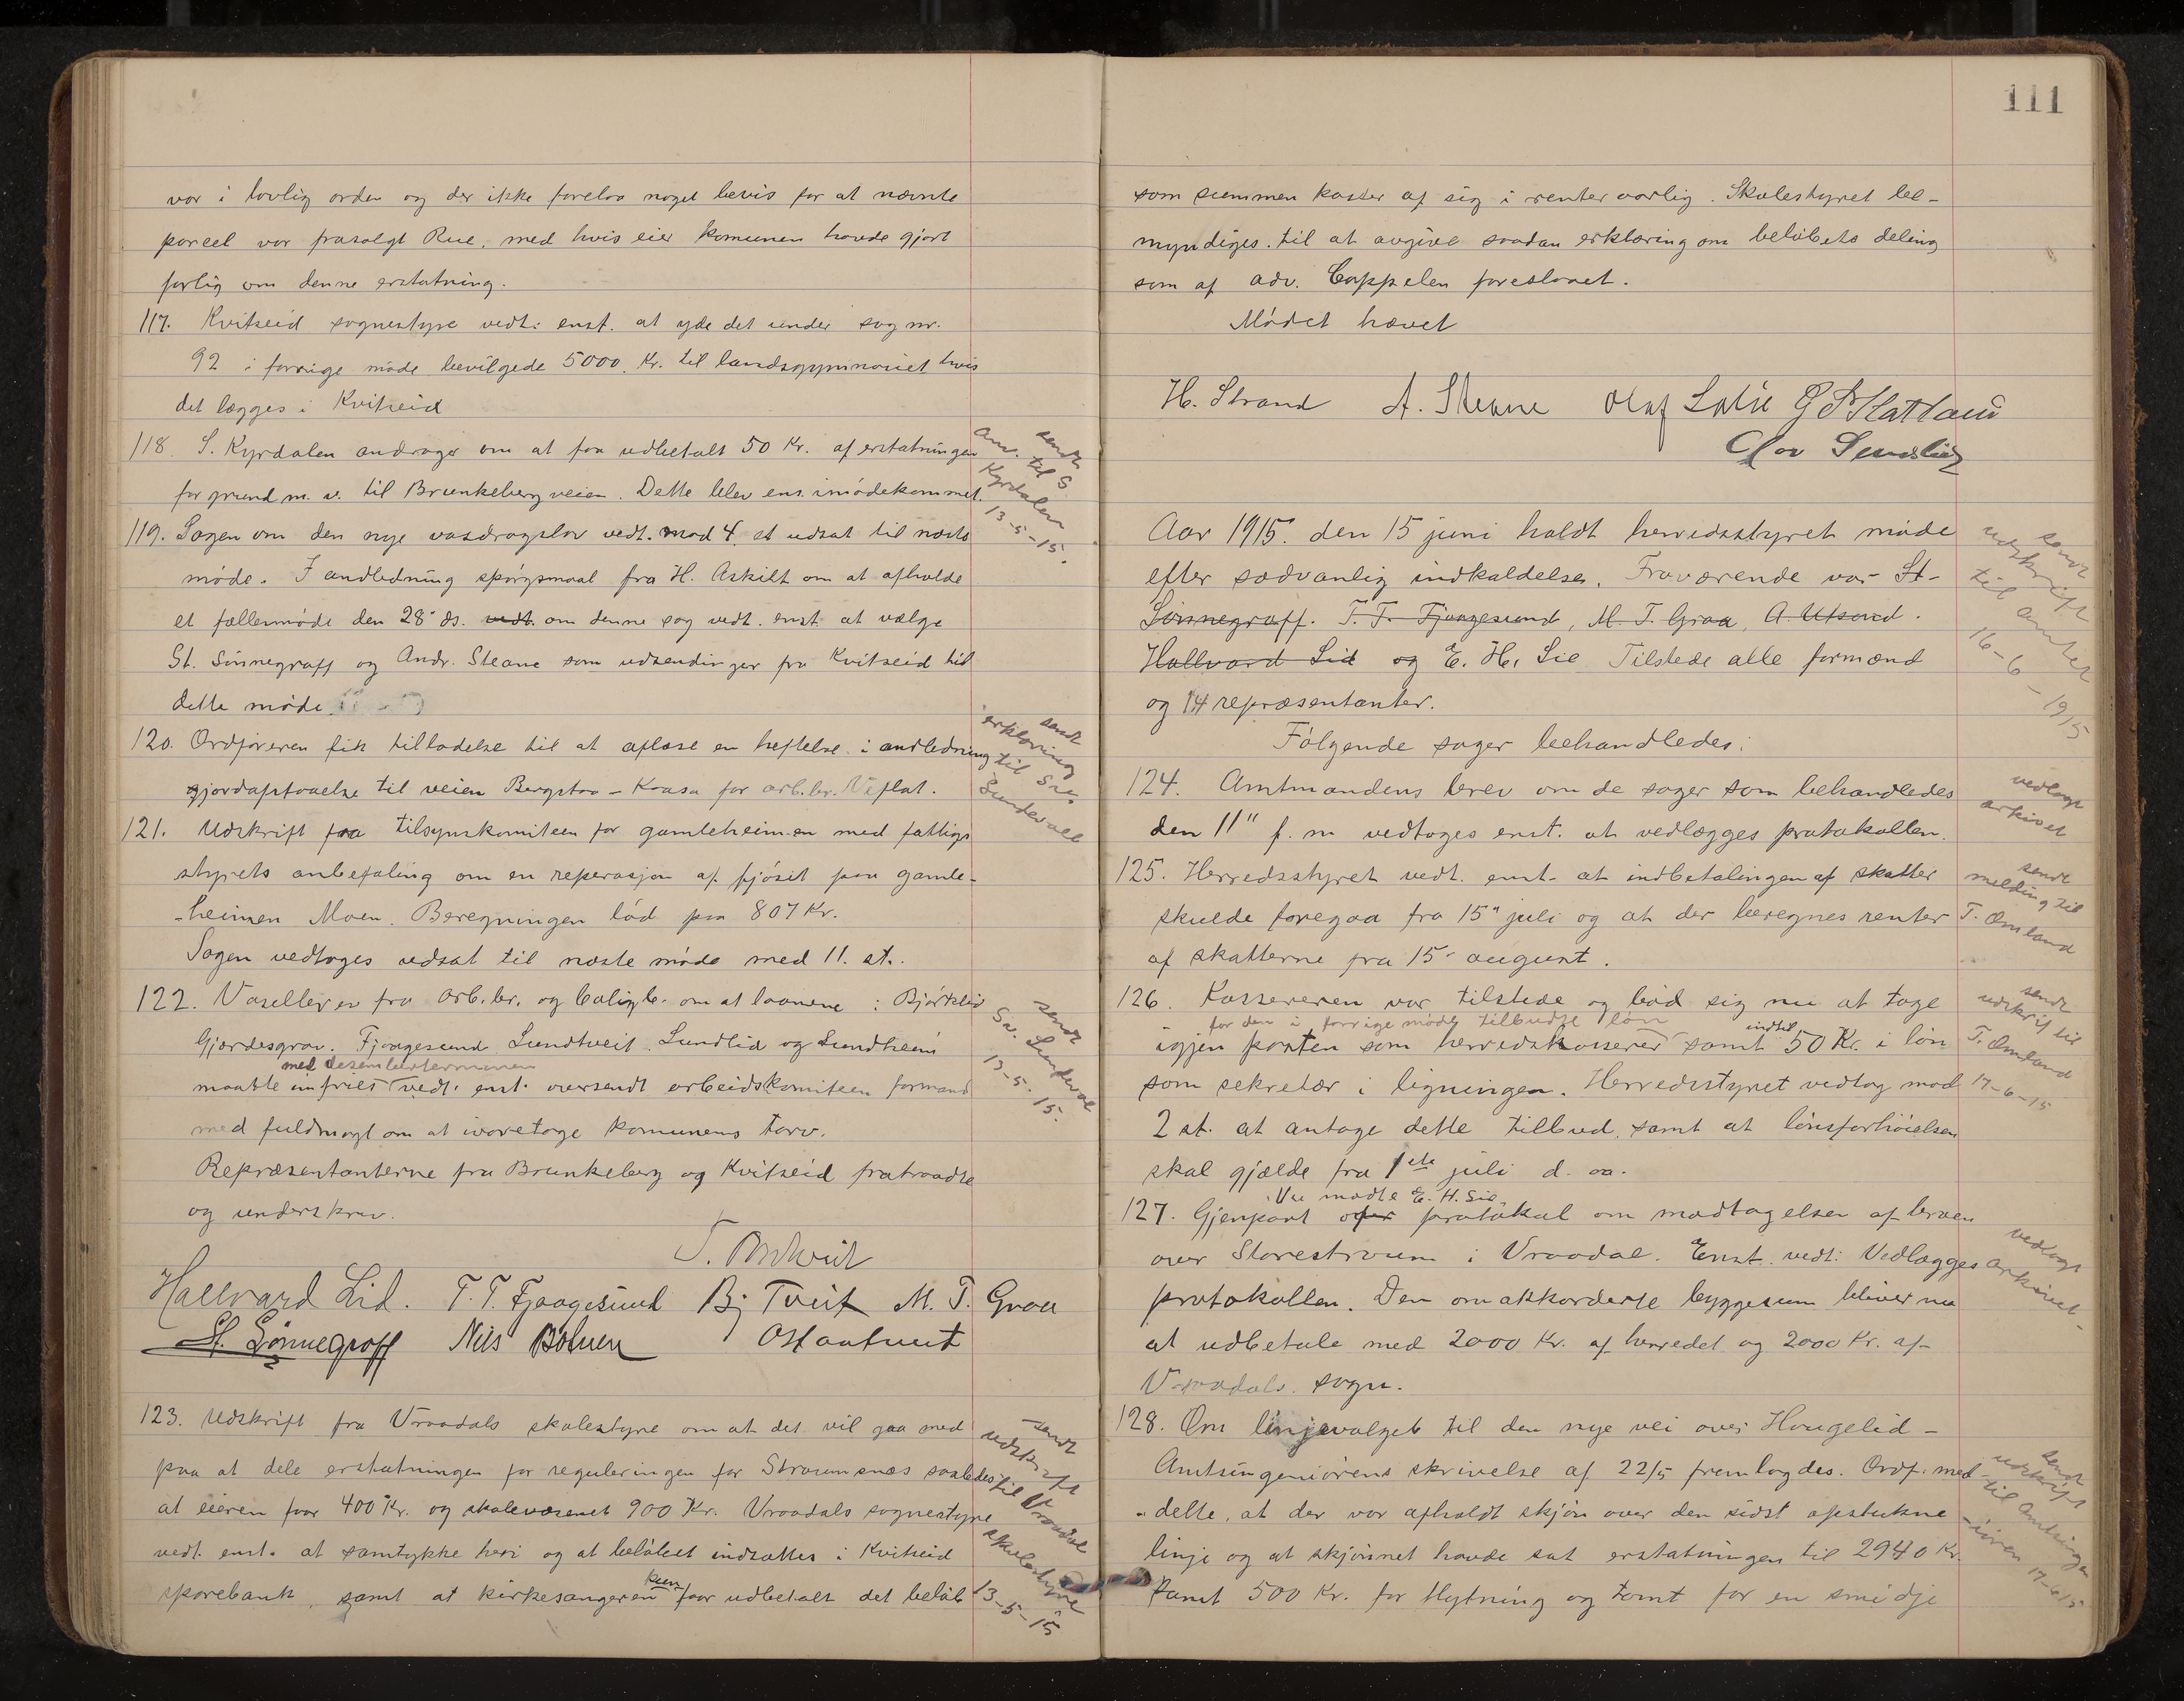 var i lovlig orden og der ikke forelaa noget bevis for at nævnte
parcel var frasolgt Rue, med hvis eier komunen havde gjort
forlig om denne erstatning.
117. Kvitseid sognestyre vedt. enst. at yde det under sag nr.
92 i forrige møde bevilgede 5000 Kr. til landsgymnasiet hvis
det lægges i Kvitseid
118. S. Kyrdalen andrager om at faa udbetalt 50 Kr. af erstatningen
for grund m. v. til Brunkebergveien. Dette blev ens. imødekommet.
sendt
anv. til S
Kyrdalen
13-5-15.
119. Sagen om den nye vasdragslov vedt. mod 4 st udsat til næste
møde. I andledning spørgsmaal fra H. Askilt om at afholde
et fællesmøde den 28 ds. vedt. om denne sag vedt. enst. at vælge
St. Sønnegraff og Andr. Steane som udsendinger fra Kvitseid til
dette møde.
120. Ordføreren fik tilladelse til at aflæse en heftelse i andledning
gjordaptaaelse til veien Bergstaa - Kaasa for arb.br. Viflat.
sendt
erklæring
til Sv.
Sundevall
121. Udskrift fra tilsynskomiteen for gamleheimen med fattig-
styrets anbefaling om en reperasjon af fjøsit paa gamle-
-heimen Moen. Beregningen lød paa 807 Kr.
Sagen vedtoges udsat til næste møde med 11. st.
122. Vaseller er fra arb.br. og boligb. om at laanene i Bjørtelid
Gjærdesgrav. Fjaagesund Lundtveit. Sundlid og Sundheim
med desemberterminen
maatte innfries vedt. enst. oversendt arbeidskomiteen formand
med fuldmagt om at ivaretage komunens tarv.
sendt
Sv. Sundeval
13-5-15.
Repræsentanterne fra Brunkeberg og Kvitseid fratraadte
og underskrev.
Hallvard Lid. T. T. Fjaagesund Bj Tveit M. T. Graa
St. Sønnegraff Nils Bøhnen
123. Udskrift fra Vraadals skolestyre om at det vil gaa med
paa at dele erstatningen for reguleringen for Straumsnæs saaledes
at eieren faar 400 Kr. og skolevæsenet 900 Kr. Vraadals sognestyre
vedt. enst. at samtykke heri og at beløbet indsættes i Kvitseid
sparebank, samt at kirkesangeren kun faar udbetalt det beløb
sendt
udskrift
til Vraadal
skolestyre
13-5-15
111
som summen kaster af sig i renter aarlig. Skolestyret be-
myndiges til at avgive saadan erklæring om beløbets deling
som af adv. Cappelen foreslaaet.
Mødet hævet
H. Strand A. Steane Olaf
Olav Sundlid
Aar 1915 den 15 juni holdt herredsstyret møde
efter sædvanlig indkaldelse. Fraværende var St-
Sønnegraff. T. T. Fjaagesund, M. T. Graa, A. Utsond.
Hallvard Lid og E. H. Lie Tilstede alle formænd
og 14 repræsentanter.
sendt
udskrift
til amtet
16-6-1915
Følgende sager behandledes:
124. Amtmandens brev om de sager som behandledes
den 11" f. m vedtoges enst. at vedlægges protokollen.
vedlagt
arkivet
125. Herredsstyret vedt. enst. at indbetalingen af skatter
skulde foregaa fra 15" juli og at der beregnes renter
af skatterne fra 15 august.
sendt
melding til
T. Omland
126. Kassereren var tilstede og bød sig nu at tage
for den i forrige møde tilbudte løn
igjen posten som herredskasserer samt indtil 50 Kr. i løn
som sekretær i ligningen. Herredsstyret vedtog mod
2 st. at antage dette tilbud, samt at lønsforhøielsen
skal gjælde fra 1ste juli d. aa.
sendt
udskrif til
T. Omland
17-6-15
Nu mødte E. H. Lie.
127. Gjenpart over protokol om mødtagelsen af broen
over Storestraum i Vraadal. Enst. vedt. Vedlægges
protokollen. Den omakkorderte byggesum bliver nu
at udbetale med 2000 Kr. af herredet og 2000 Kr. af-
Vraadals sogn.
vedlagt
arkivet-
128. Om linjevalget til den nye vei over Haugelid -
Amtsingeniørens skrivelse af 22/5 fremlagdes. Ordf. med-
-delte, at der var afholdt skjøn over den sidst opstukne
linje og at skjønnet havde sat erstatningen til 2940 Kr.
samt 500 Kr. for flytning og tomt for en smidje
sendt
udskrift
til amtsinge-
-iøren 17-6-15